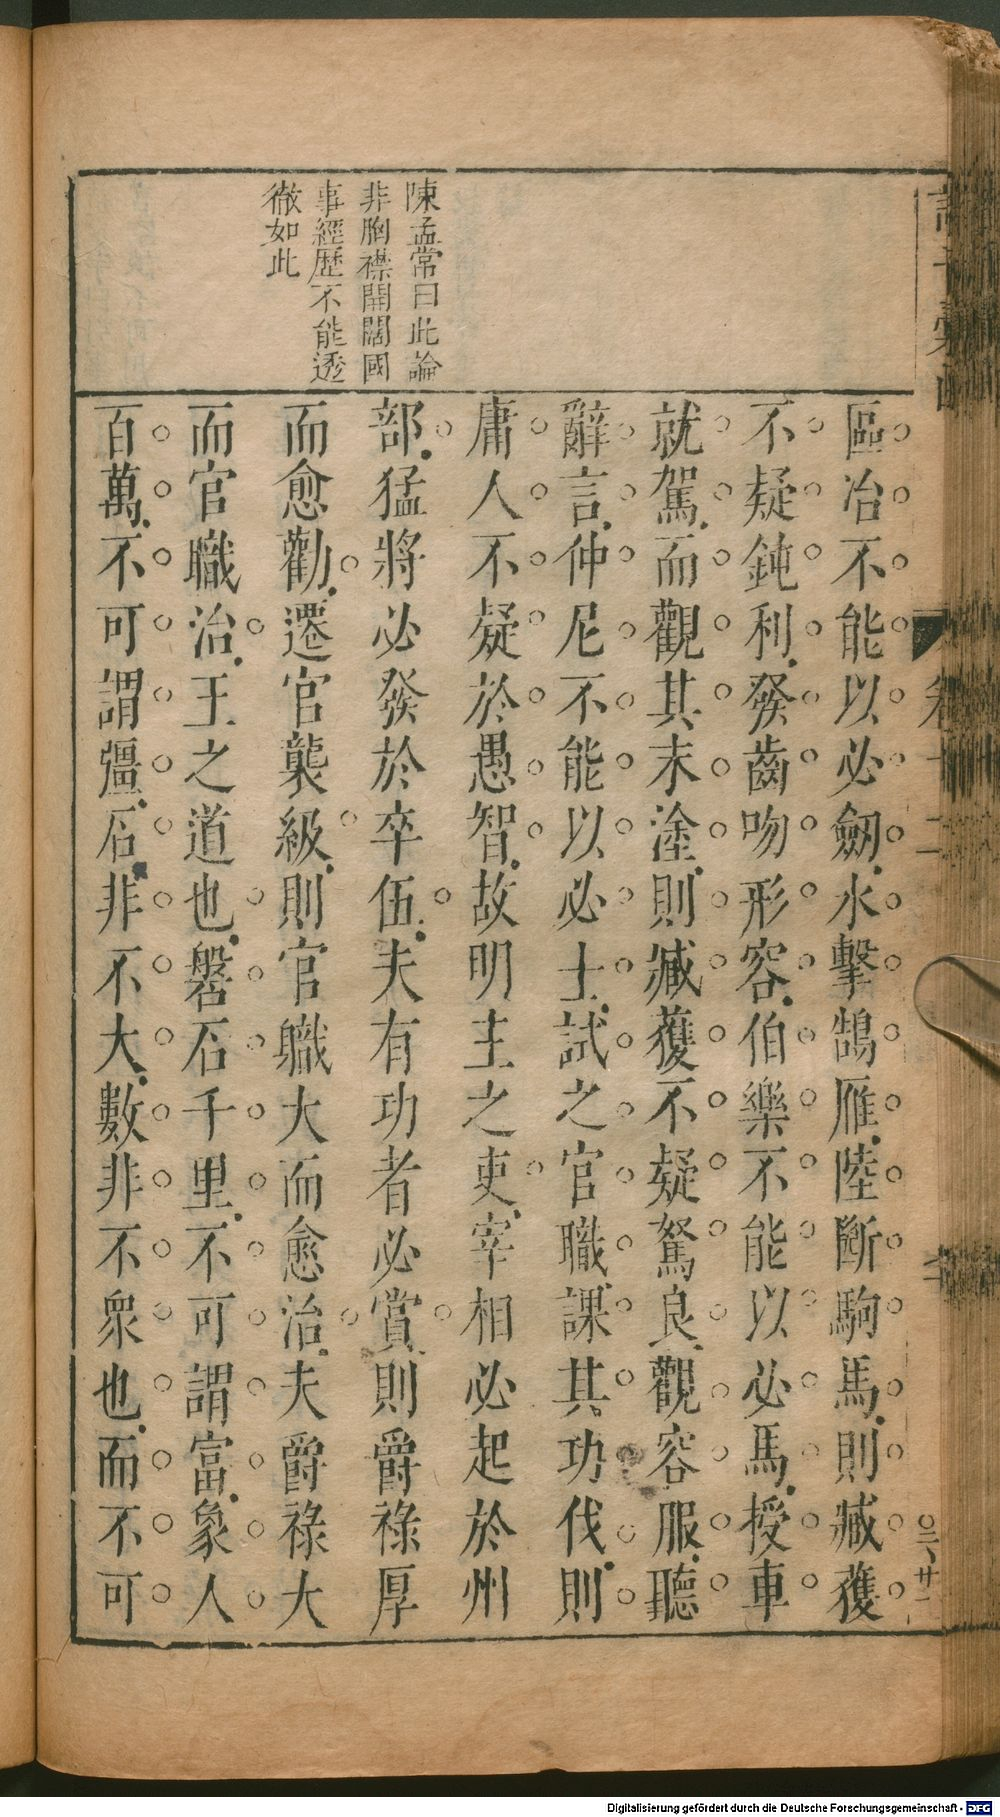 陳孟常曰此論
非胸襟開闊國
事經歷不能透
徹如此
區冶不能以必劒水擊鵠雁陸斷駒馬則臧獲
不疑鈍利發齒吻形容伯樂不能以必馬授車
就駕而觀其末塗則臧獲不疑駑良觀容服聽
辭言仲尼不能以必士試之官職課其功伐則
庸人不疑於愚智故明主之吏宰相必起於州
部猛將必發於卒伍夫有功者必賞則爵祿厚
而愈勸遷官襲級則官職大而愈治夫爵祿大
而官職治王之道也磐石千里不可謂富象人
百萬不可謂彊石非不大數非不衆也而不可
Digitalisierung gefördert durch die Deutsche Forschungsgemeinschaft - DFG